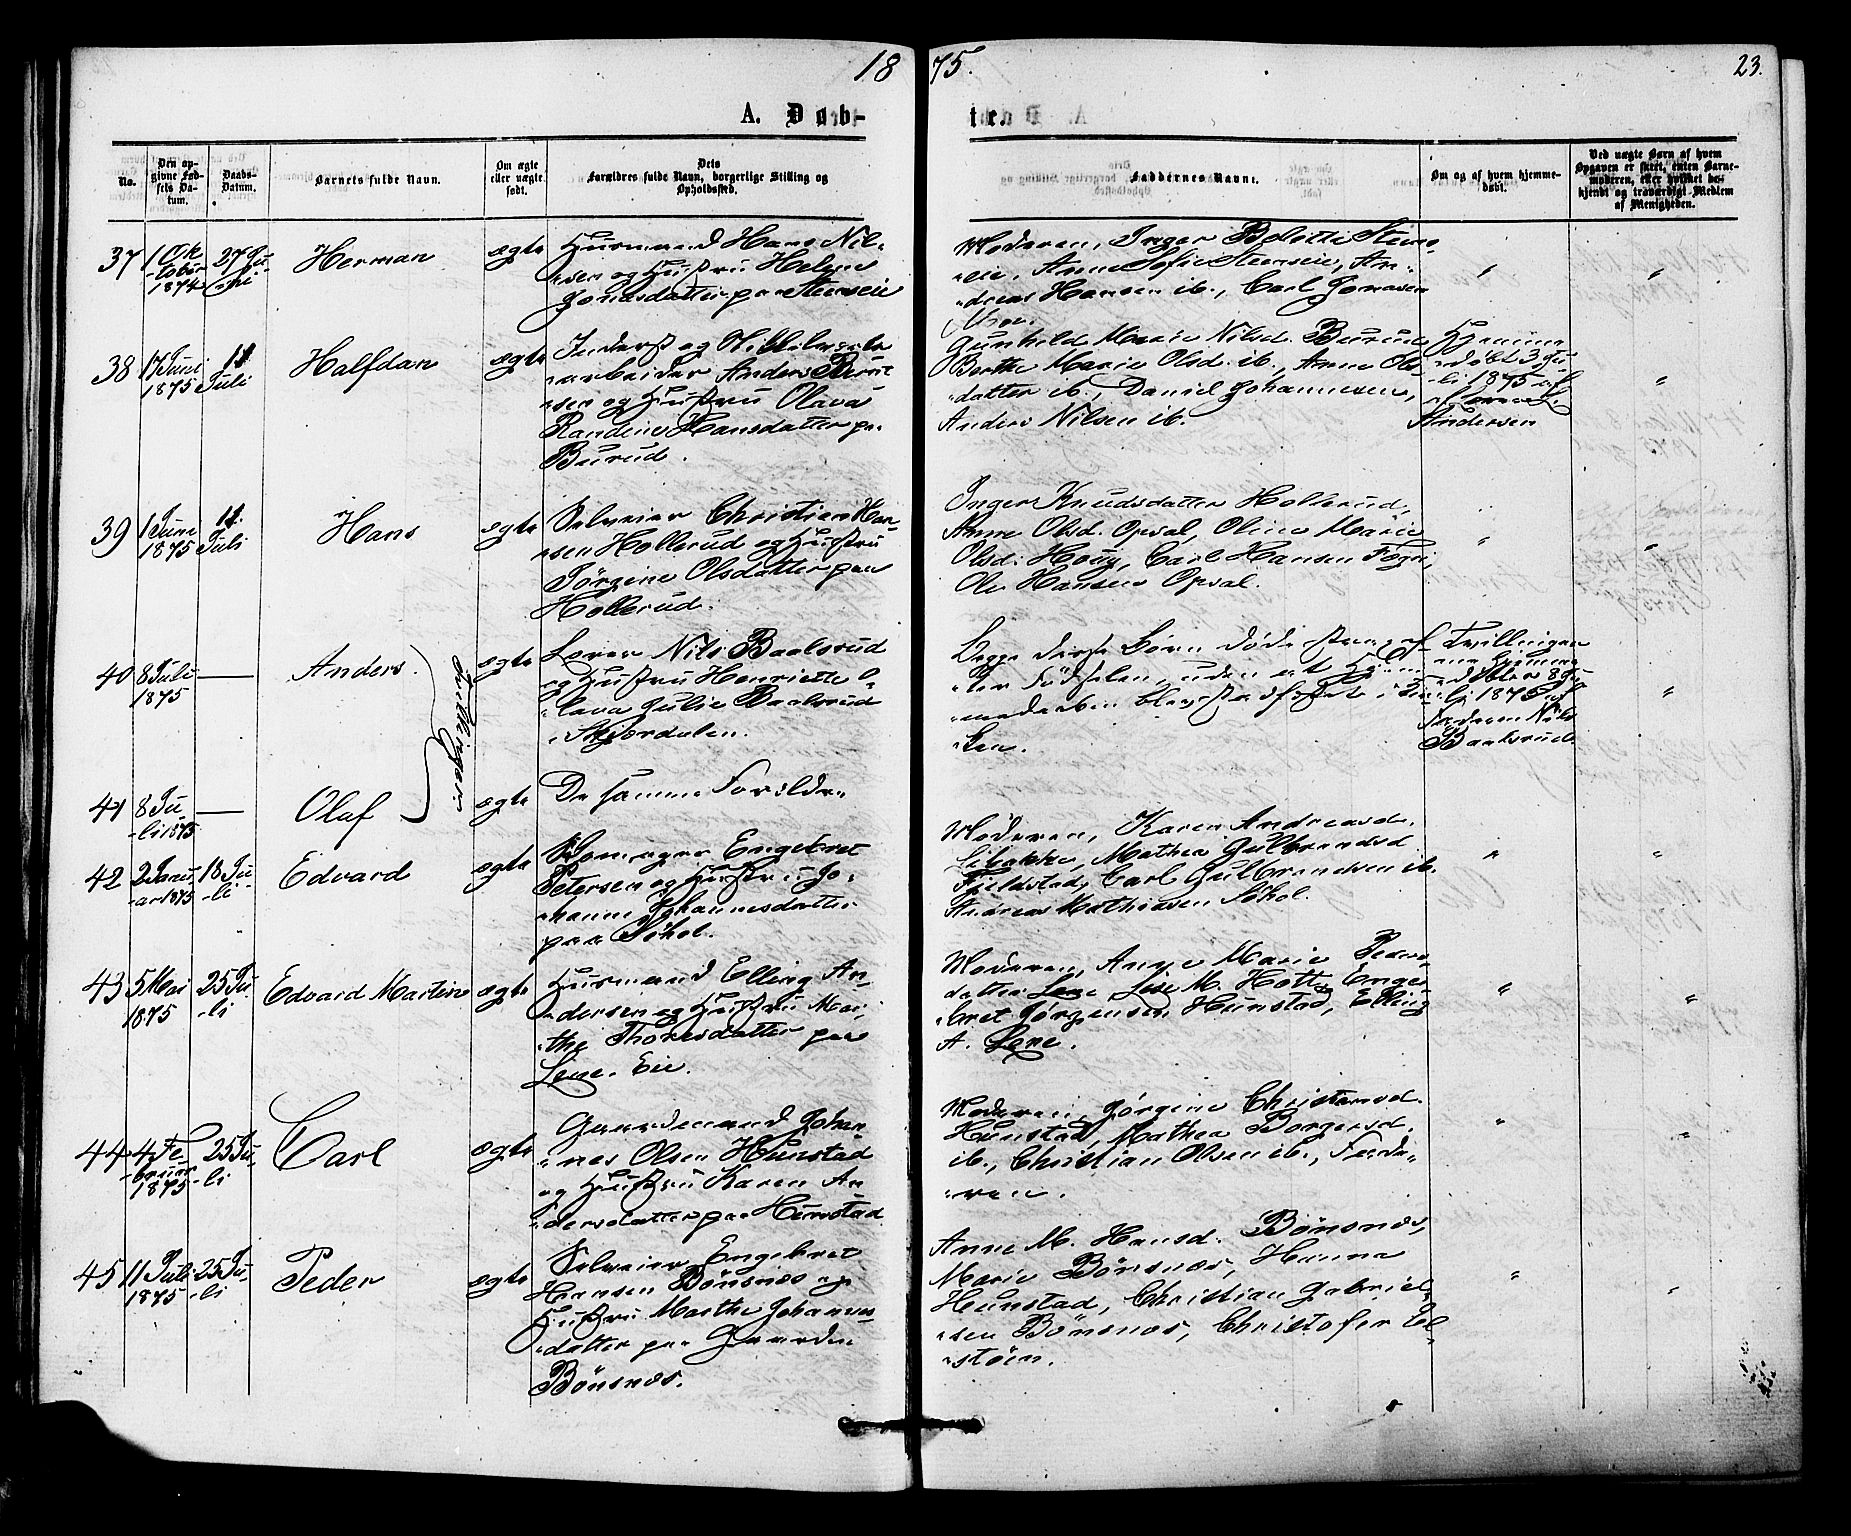 18 75. 23.
A. Døb- te.
No.
Den op-
givne Fød-
sels Da-
tum.
Daabs-
Datum.
Barnets fulde Navn.
Om ægte
eller uægte
født.
Dets
Forældres fulde Navn, borgerlige Stilling og
Opholdssted.
Faddernes Navne.
Om og af hvem hjemme-
døbt.
Ved uægte Børn af hvem
Opgaven er skeet, enten Barne-
moderen, eller hvilket be-
kjendt og troværdigt Medlem
af Menigheden.
37
1 Ok
-tober
1874
27 Ju-
Herman
ægte
Husmand Hans Nil-
sen og Hustru Helene
Jonasdatter paa Steenseie
Moderen, Inger Steens-
eie, Anne Sofie Steenseie, An-
dreas Hansen ib., Carl Jonasen
"
"
38
17 Juni
1875
11
Juli
Halfdan
ægte
Inderst og
arbeider Anders
sen og Hustru Olava
Randine Hansdatter paa
Burud.
Gunhild Marie Nilsd. Burud
Berthe Marie Olsd. ib., Anne Ols-
datter ib., Daniel Johannesen,
Anders Nilsen ib.
Hjemme-
døbt 3 Ju-
li 1875 af
Andersen
"
39
1 Juni
1875
11.
Juli
Hans
ægte
Selveier Christian Han-
sen Hollerud og Hustru
Jörgine Olsdatter paa
Hollerud.
Inger Knudsdatter Hollerud,
Anne Olsd. Opsal, Oline Marie
Olsd. Houg, Carl Hansen
Ole Hansen Opsal.
"
"
40
8 Juli
1875
—
Anders.
Tvillinger
ægte
Lærer Nils Baalsrud
og Hustru Henriette O-
lava Julie Baalsrud
i Skjordalen.
Begge disse Börn døde strax ef-
ter Födselen, uden at Hjem-
medaaben blev stadfæstet i Kir-
ken.
Tvillingen
ene hjemme-
døbte 8 Ju-
li 1875 af
Faderen Nils
Baalsrud.
"
41
8 Ju-
-li 1875
—
Olaf
ægte
De samme Forældre
42
2 Janu-
-ar 1875
18 Ju-
-li
Edvard
ægte
Skomager Engebret
Petersen og Hustru Jo-
hanne Johannesdatter
paa Søhol.
Moderen, Karen Andreasd.
Libakke, Mathea Gulbrandsd
Fjeldstad, Carl Gulbrandsen ib.
Andreas Mathiasen Söhol.
"
"
43
5 Mai
1875
25 Ju-
-li
Edvard Martin
ægte
Husmand Elling An-
dersen og Hustru Mar-
the Thoresdatter paa
Lene. Eie.
Moderen, Ange Marie Peders-
datter Lene, Lise M. Hatte, Enge-
bret Jørgensen Hunstad, Elling
A. Lene.
"
"
44
4 Fe-
-bruar
1875
25 Ju-
-li
Carl
ægte
Gaardmand Johan-
nes Olsen Hunstad
og Hustru Karen An-
dersdatter paa Hunstad
Moderen, Jörgine Christensd.
Hunstad, Mathea Borgersd.
ib., Christian Olsen ib., Fade-
ren.
"
"
45
11 Juli
1875
25 Ju-
-li
Peder
ægte
Selveier Engebret
Hansen Bönsnæs og
Hustru Marthe Johannes-
datter paa Gaarden
Bönsnæs.
Anne M. Hansd. Bönsnæs,
Marie Bönsnæs, Hanna
Hunstad, Christian Gabriel-
sen Bönsnæs, Christofer El-
stöen.
"
"